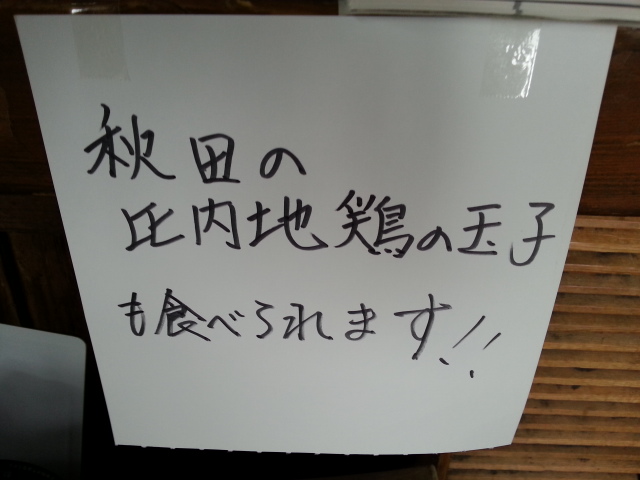 秋田の
比内地鶏の玉子
も食べられます!!